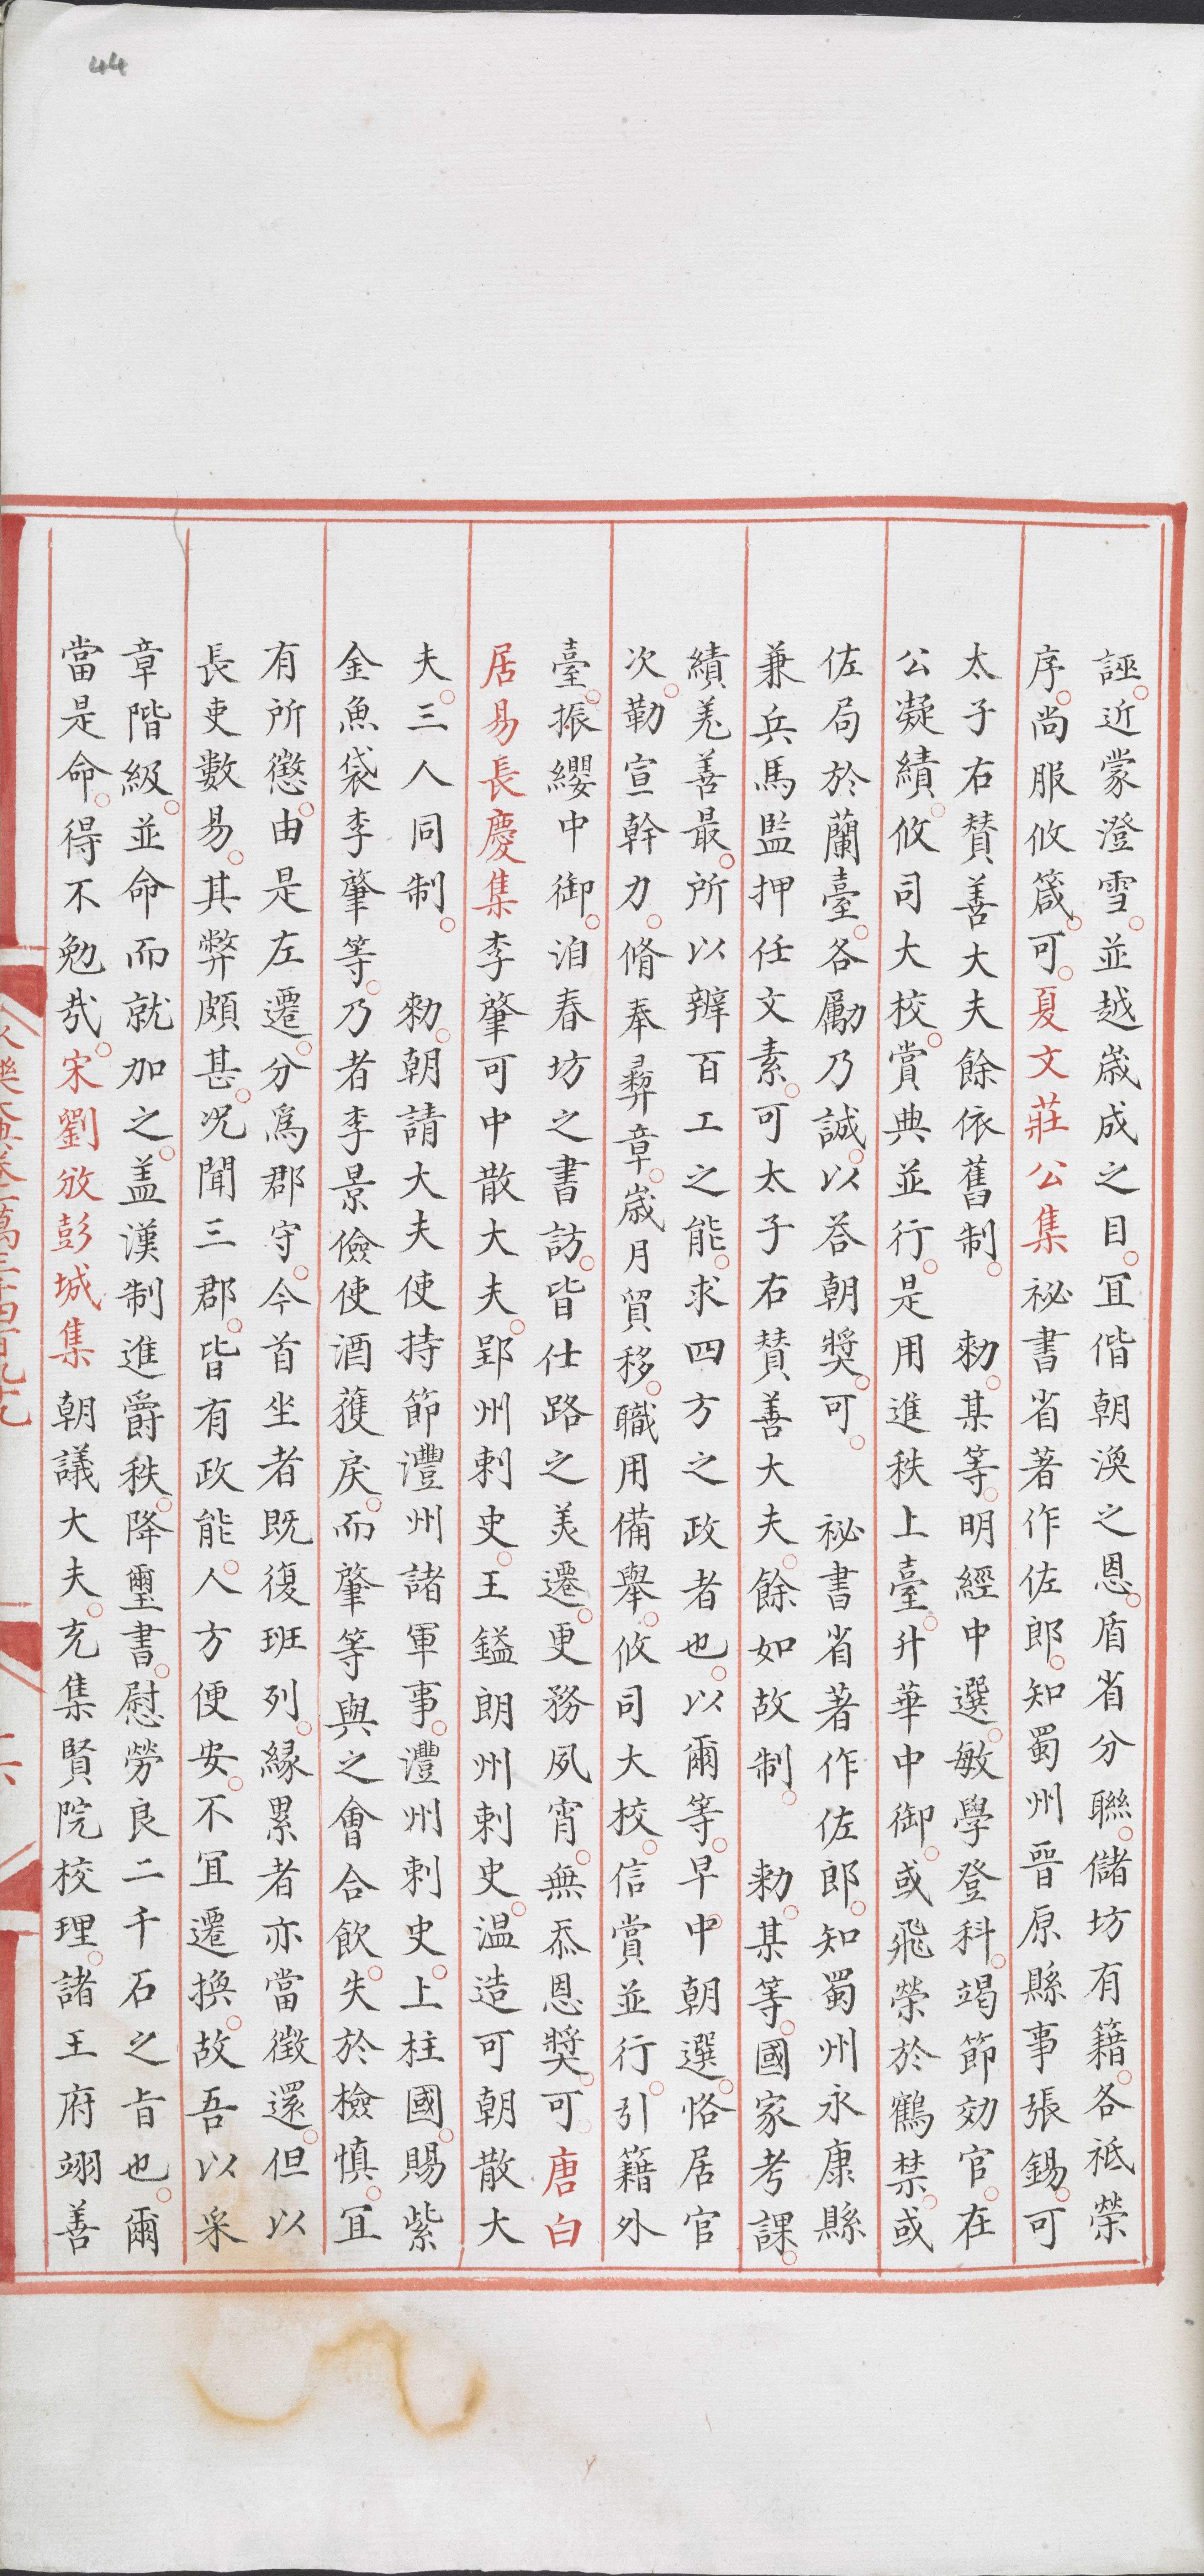 44
誣。近蒙澄雪。並越歲成之目。冝偕朝渙之恩。盾省分聯。儲坊有籍。各祗榮
序。尚服攸箴。可。夏文莊公集 祕書省著作佐郎。知蜀州晉原縣事張錫。可
太子右賛善大夫餘依舊制。 勑。某等。明經中選。敏學登科。竭節効官。在
公凝績。攸司大校。賞典並行。是用進秩上臺。升華中御。或飛榮於鶴禁。或
佐局於蘭臺。各勵乃誠。以荅朝獎。可。 祕書省著作佐郎。知蜀州永康縣
兼兵馬監押任文素。可太子右賛善大夫。餘如故制。 勑。某等。國家考課。
績羗善最。所以辨百工之能。求四方之政者也。以爾等。早中朝選。恪居官
次。勤宣幹力。脩奉彛章。歲月貿移。職用備舉。攸司大校。信賞並行。引籍外
臺。振纓中御。洎春坊之書訪。皆仕路之羙遷。更務夙宵。無忝恩獎。可。唐白
居易長慶集李肇可中散大夫。郢州刺史。王鎰朗州刺史。温造可朝散大
夫。三人同制。 勑。朝請大夫使持節澧州諸軍事。澧州刺史。上柱國。賜紫
金魚袋李肇等。乃者李景儉使酒獲戾。而肇等與之㑹合飲。失於檢慎。冝
有所懲。由是左遷。分爲郡守。今首坐者既復班列。緣累者亦當徴還。但以
長吏數易。其弊頗甚。况聞三郡。皆有政能。人方便安。不冝遷換。故吾以采
章階級。並命而就加之。盖漢制進爵秩。降璽書。慰勞良二千石之旨也。爾
當是命。得不勉㢤。宋劉攽彭城集朝議大夫。充集賢院校理。諸王府翊善